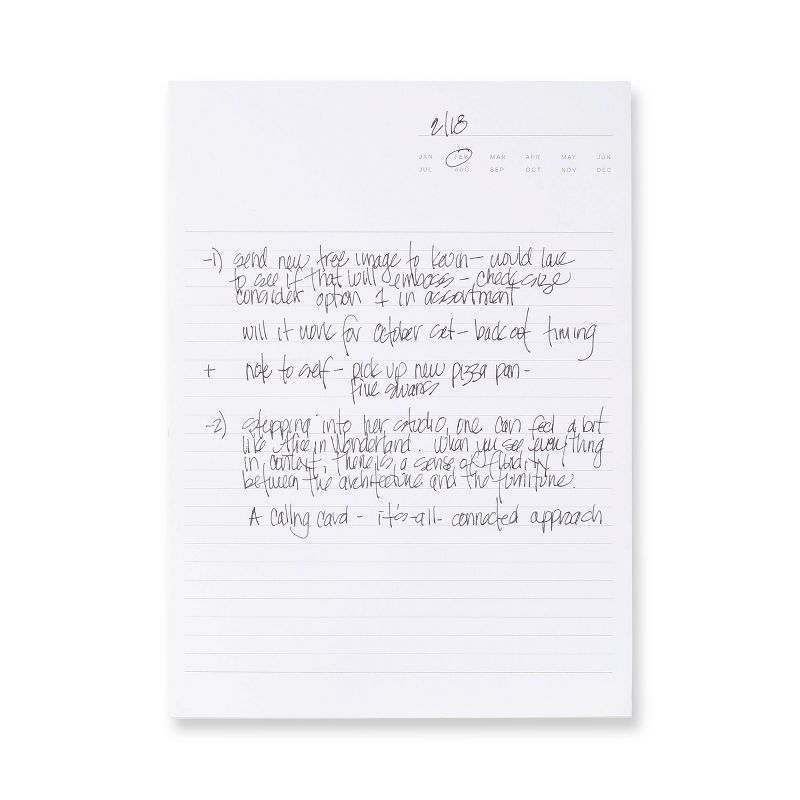 2/18
JAN FEB MAR APR MAY JUN
JUL AUG SEP OCT NOV DEC
-1) send new tree image to Kevin - would love
to see if that will emboss - check size
consider option 1 in assortment
will it work for October set - back out timing
+ note to self - pick up new pizza pan -
five swans
-2) stepping into her studio, one can feel a bit
like Alice in Wonderland. When you see everything
in context, there is a sense of fluidity
between the architecture and the furniture.
A calling card - it's-all-connected approach